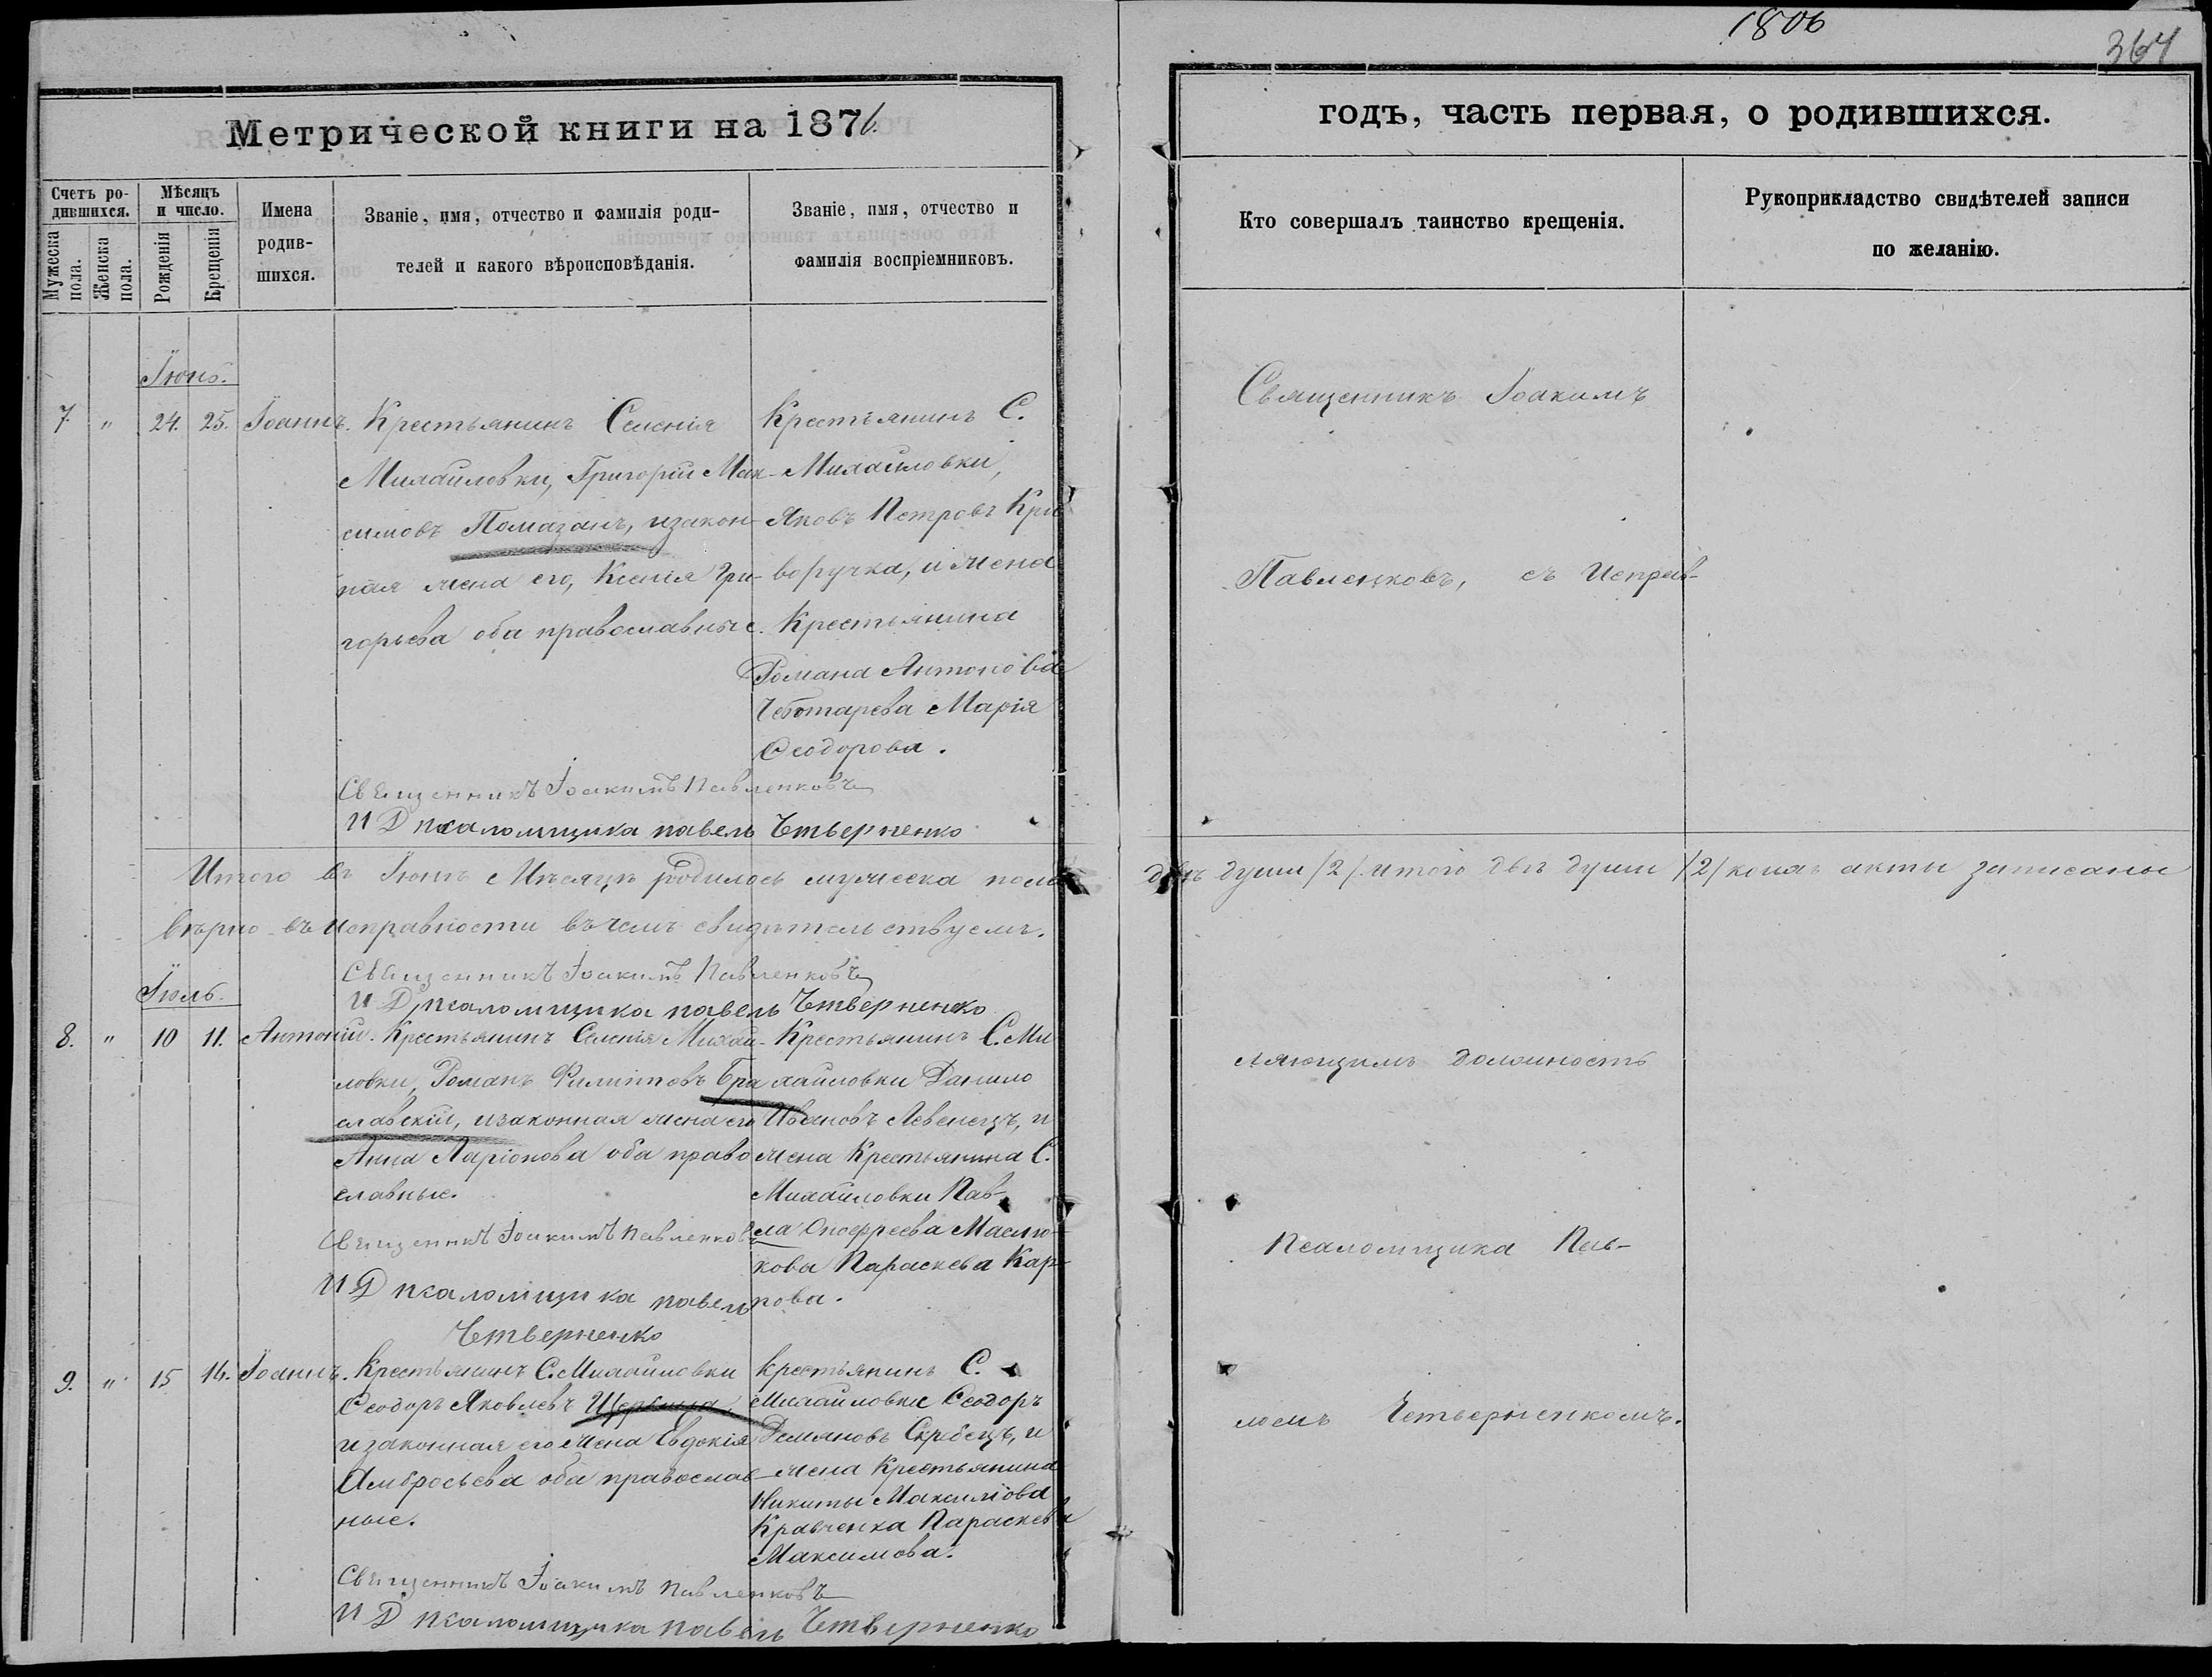 1806
364
Метрической книги на 1876.
годъ, часть первая, о родившихся.
Счетъ ро-
дившихся.
Мужеска
пола.
Женска
пола.
Мѣсяцъ
и число.
Рожденія
Крещенія
Имена
родив-
шихся.
Званіе, имя, отчество и фамилія роди-
телей и какого вѣроисповѣданія.
Званіе, имя, отчество и
фамилія воспріемниковъ.
Кто совершалъ таинство крещенія.
Рукоприкладство свидѣтелей записи
по желанію.
Іюнь.
7. " 24. 25. Іоаннъ.
Крестьянинъ Селенія
Михайловки, Григорій Мак-
симовъ Помазанъ, изакон-
ная жена его, Ксенія Гри-
горьева оба православные.
Крестьянинъ С.
Михайловки,
Яковъ Петровъ Кри
воручка, и жена
Крестьянина
Романа Антонова
Чеботарева Марія
Ѳеодорова.
Священникъ Іоакимъ Павленковъ
И Д псаломщика павелъ Четверненко
Итого въ Іюнѣ Мѣсяцѣ родилось мужеска пола двѣ души /2/. итого двѣ души /2/ коихъ акты записаны
вѣрно въ исправности въ чемъ свидѣтельствуемъ.
Священникъ Іоакимъ Павленковъ
И Д псаломщика павелъ Четверненко
Іюль.
8. " 10 11. Антоній.
Крестьянинъ Селенія Михай-
ловки, Романъ Филиповъ Бра
славскій, изаконная жена его
Анна Ларіонова оба право
славные.
Крестьянинъ С. Ми
хайловки Данило
Ивановъ Левенецъ, и
жена Крестьянина С.
Михайловки Пав-
ла Онофреева Маслю-
кова Параскева Кар-
пова.
Священникъ Іоакимъ Павленковъ
И Д псаломщика павелъ
Четверненко
9. " 15 16. Іоаннъ.
Крестьянинъ С. Михайловки
Ѳеодоръ Яковлевъ Щербина,
изаконная его жена Евдокія
Амбросьева оба православ-
ные.
крестьянинъ С.
Михайловки Ѳеодоръ
Демяновъ Скребецъ, и
жена Крестьянина
Никиты Максимова
Кравченка Параскева
Максимова.
Священникъ Іоакимъ Павленковъ
И Д псаломщика павелъ Четверненко
Священникъ Іоакимъ
Павленковъ, съ Исправ-
ляющимъ должность
Псаломщика Пав-
ломъ Четверненкомъ.